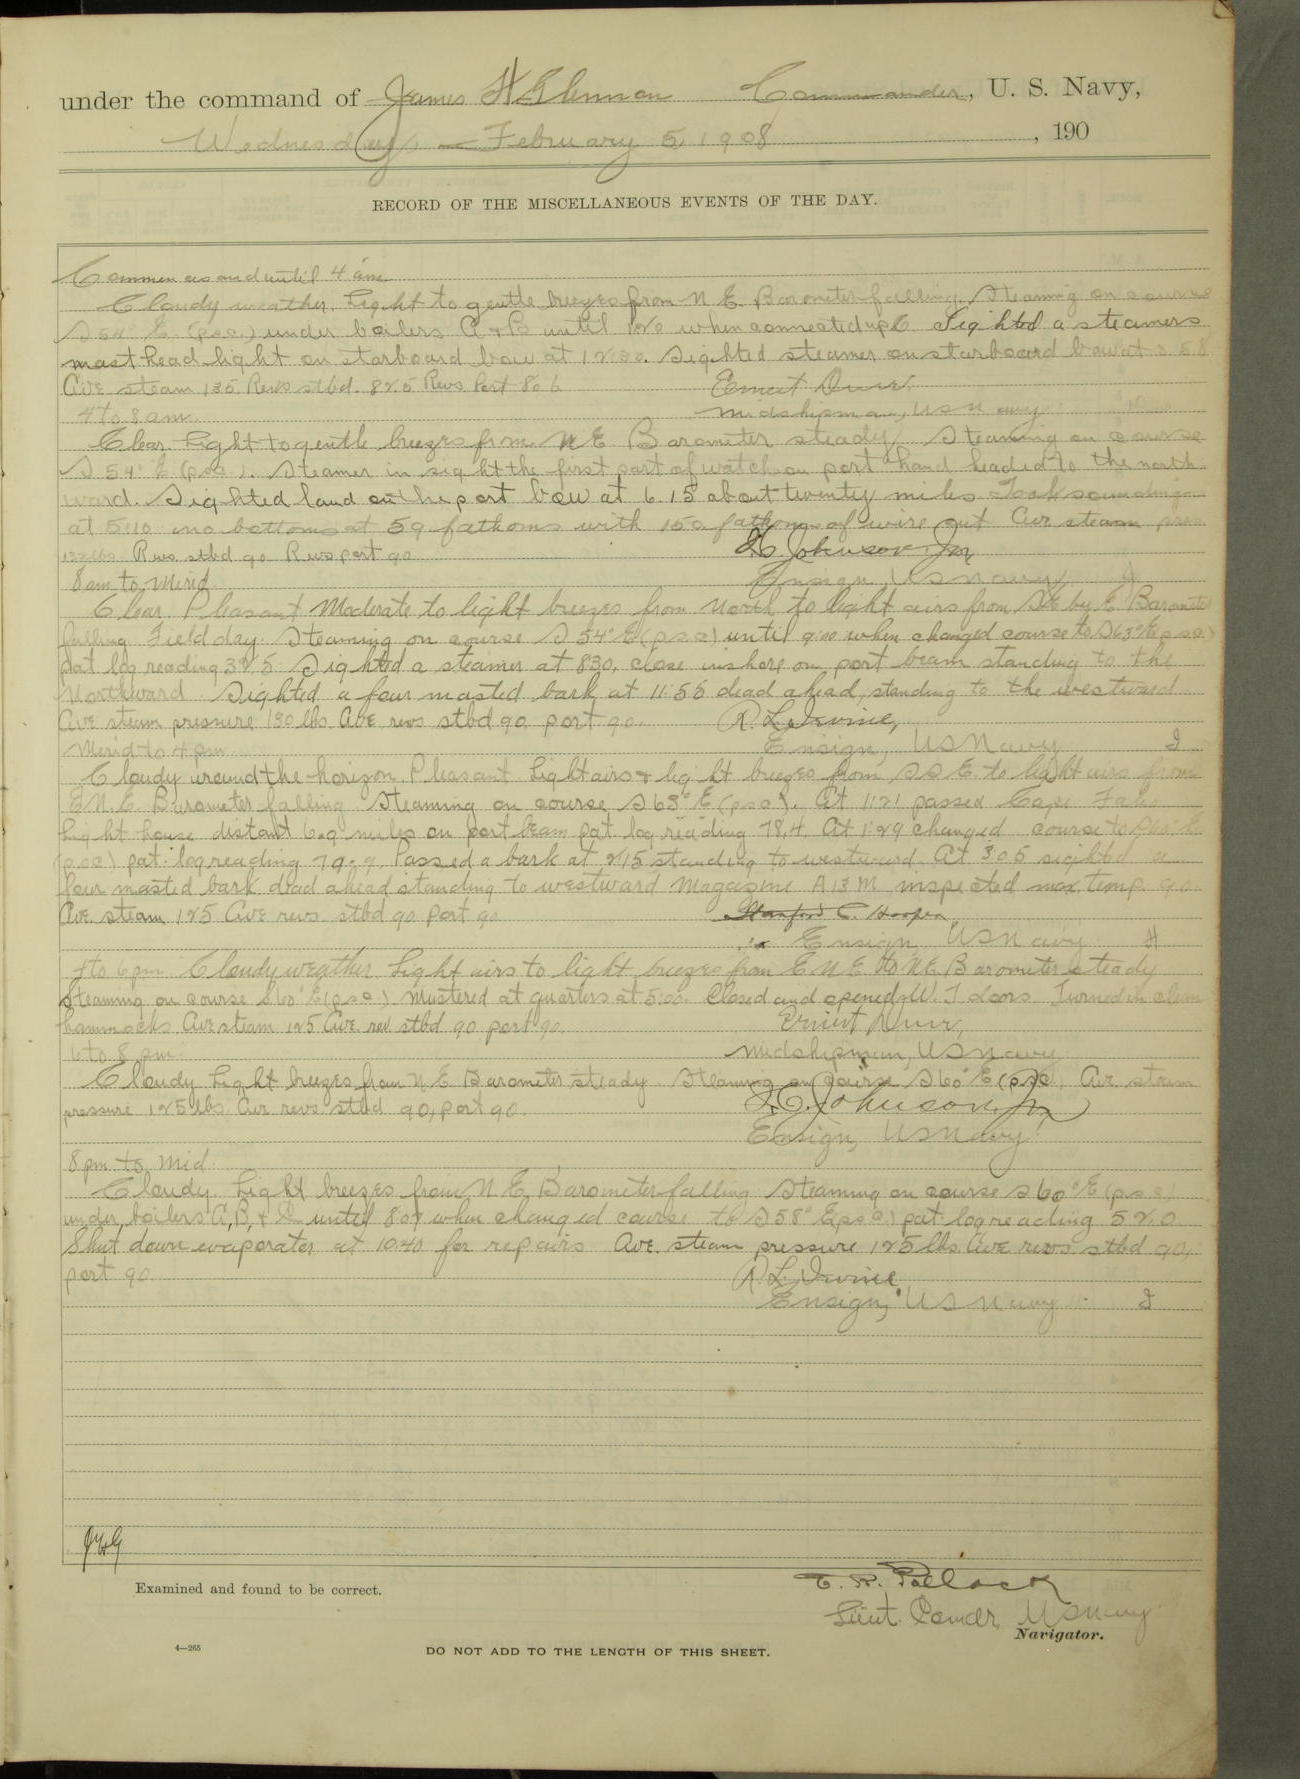 under the command of James H Glennon Commander, U. S. Navy,
Wednesday, February 5, 1908 , 190
RECORD OF THE MISCELLANEOUS EVENTS OF THE DAY.
Commences and until 4 am
Cloudy weather. Light to gentle breezes from N E. Barometer falling. Steaming on course
S 54° E. (p.s.c.) under boilers A & B until when connected up C. Sighted a steamers
mast head light on starboard bow at 12:30. Sighted steamer on starboard bow at 3 58
Ave steam 135 Revs stbd. 82.5 Revs Port 80.6 Ernest Durr
4 to 8 am. Midshipman, US Navy
Clear. Light to gentle breezes from N E Barometer steady. Steaming on course
S 54° E (p.s.c.). Steamer in sight the first part of watch on port hand headed to the north
ward. Sighted land on the port bow at 6 15 about twenty miles Took sounding
at 5:10 no bottom at 59 fathoms with 150 fathoms of wire out Ave steam pres
132 lbs. Revs. stbd 90 Revs port 90 Johnson Jr
8 am to Merid. Ensign, US Navy
Clear. Pleasant Moderate to light breezes from North to light airs from SE by E Barometer
falling Field day. Steaming on course S 54° E (p.s.c.) until 9:00 when changed course to S 63° E p.s.c.)
pat log reading 32.5. Sighted a steamer at 8:30, close inshore on port beam standing to the
Northward. Sighted a four masted bark at 11:55 dead ahead, standing to the westward
Ave steam pressure 130 lbs. Ave revs stbd 90, port 90. R. L. Irvine,
Merid to 4 pm Ensign, US Navy I
Cloudy around the horizon. Pleasant Light airs & light breezes from S S E. to light airs from
E N. E. Barometer falling Steaming on course S 63° E (p.s.c.). At 1:21 passed Cape
Light house distant 6.9 miles on port beam pat log reading 78.4. At 1:29 changed course to S 60° E
(p.s.c) pat. log reading 79.9. Passed a bark at 2:15 standing to westward. At 3:05 sighted a
four masted bark dead ahead standing to westward Magazine A 13 M inspected max. temp. 90.
Ave steam 125 Ave revs stbd 90 Port 90 Stanford C. Hooper
Ensign US Navy H
4 to 6 pm Cloudy weather. Light airs to light breezes from E N E to N E. Barometer steady
Steaming on course S 60° E (p.s.c.) Mustered at quarters at 5:00. Closed and opened W. T doors. Turned in clean
hammocks Ave steam 125 Ave. rev stbd 90 port 90. Ernest Durr,
6 to 8 pm. Midshipman, US Navy
Cloudy Light breezes from N E Barometer steady Steaming on course S 60° E (p.s.c). Ave. steam
pressure 125 lbs Ave revs stbd 90, port 90 I. C. Johnson, Jr
Ensign, US Navy
8 pm to Mid
Cloudy Light breezes from N. E. Barometer falling. Steaming on course S 60° E (p.s.c)
under boilers A, B, & C until 8:07 when changed course to S 58° E p.s.c) pat. log reading 52.0
Shut down evaporator at 10:40 for repairs Ave. steam pressure 125 lbs. Ave revs stbd 90,
port 90 R. L. Irvine
Ensign, US Navy I
JHG
Examined and found to be correct. E. H. Pollock
Lieut. Comdr, US Navy
Navigator.
4—265 DO NOT ADD TO THE LENGTH OF THIS SHEET.